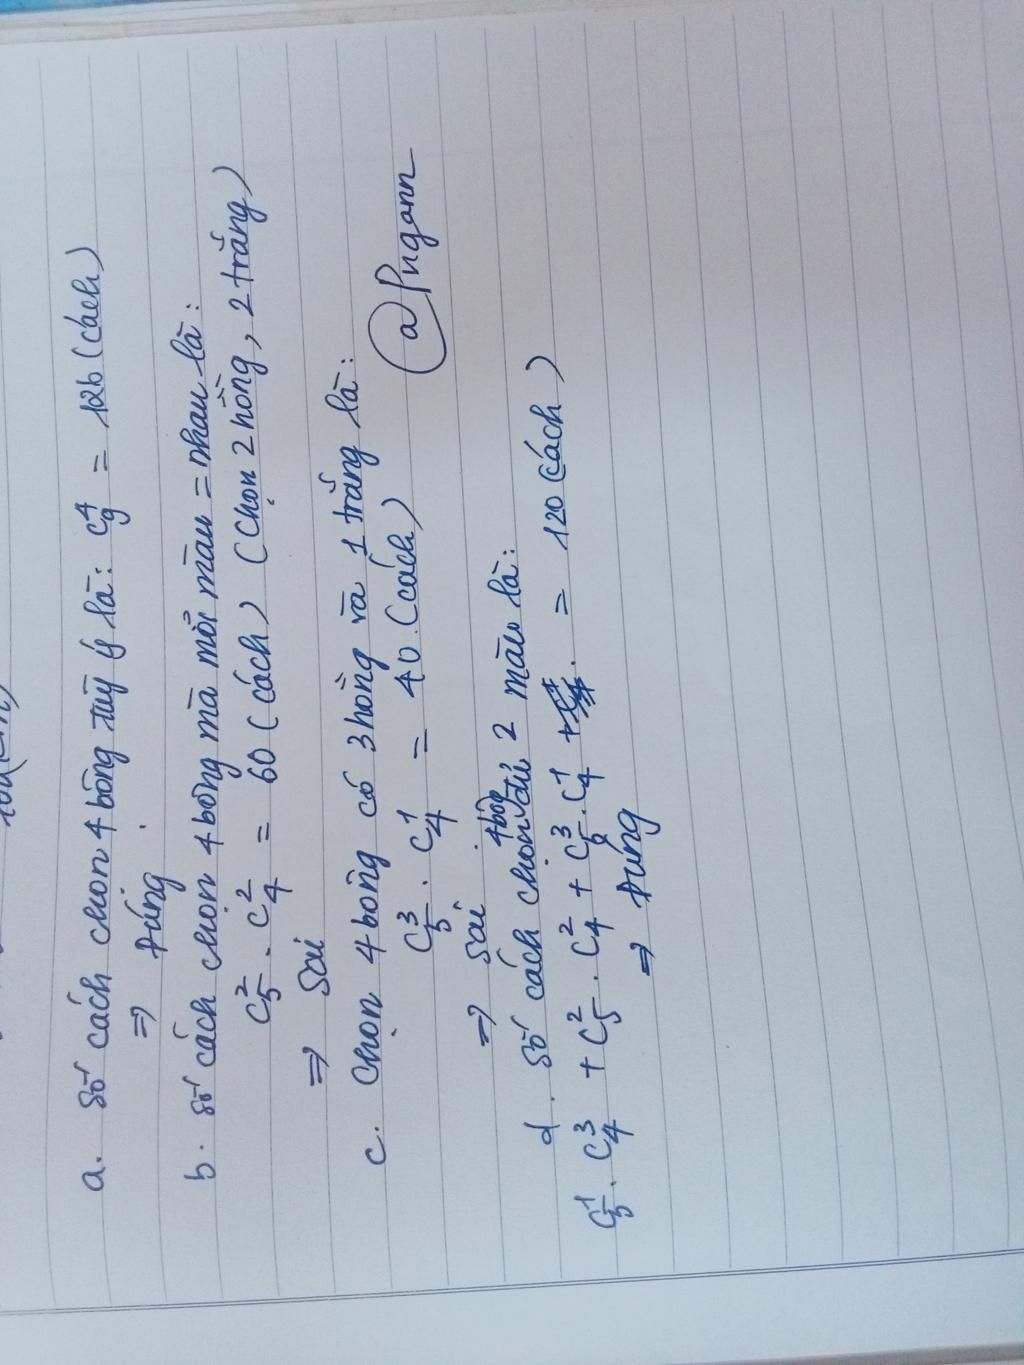 a. Số cách chọn 4 bông tuỳ ý là: C₉⁴ = 126 (cách)
⇒ Đúng
b. Số cách chọn 4 bông mà mỗi màu = nhau là:
C₅² . C₄² = 60 (cách) (Chọn 2 hồng, 2 trắng)
⇒ Sai
c. Chọn 4 bông có 3 hồng và 1 trắng là:
C₅³ . C₄¹ = 40 (cách)
@Pngann
⇒ Sai
d. Số cách chọn 4 bông đủ 2 màu là:
C₅¹ . C₄³ + C₅² . C₄² + C₅³ . C₄¹ = 120 (cách)
⇒ Đúng